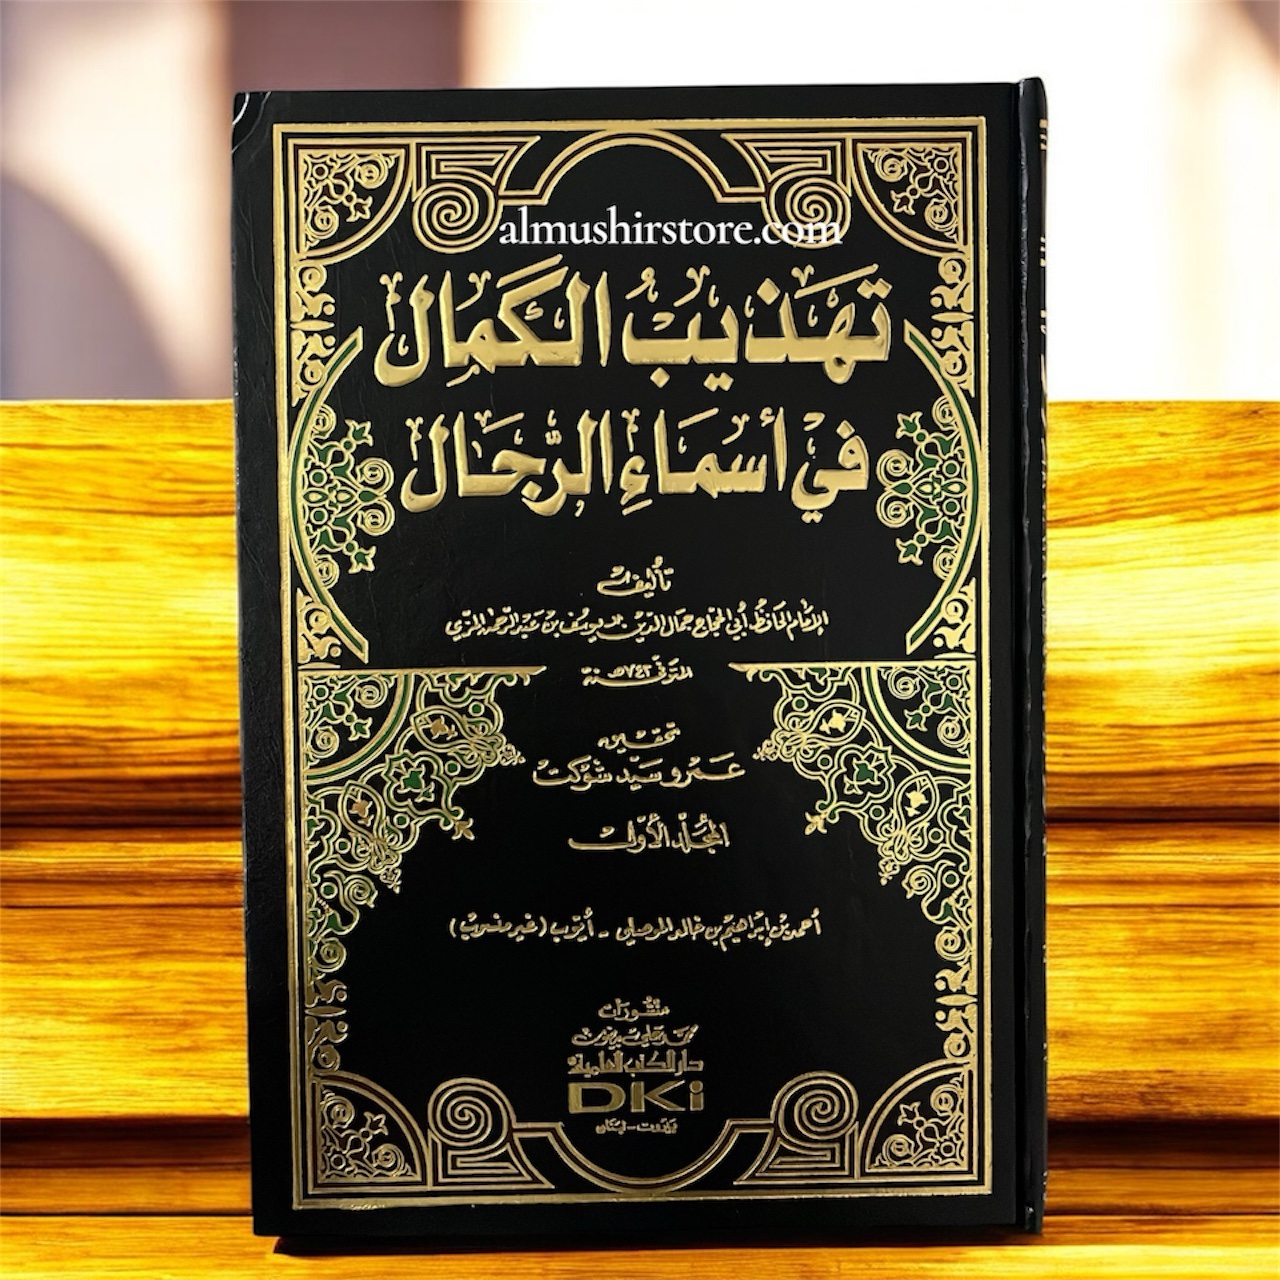 almushirstore.com
تهذيبُ الكَمال
في أسماءِ الرّجَال
تأليف
الإمَام الحَافظ أبي الحجّاج جمال الدين يوسُف بن عَبد الرّحمٰن المزّي
المتوفّى سنة ٧٤٢هـ
تحقيق
عَمرو سَيّد شَوكت
المجُلّد الأوّل
أحمد بن إبراهيم بن خالد الموصلي - أيّوب (غير منسوب)
منشورات
محمد علي بيضون
دار الكتب العلمية
DKi
بيروت - لبنان